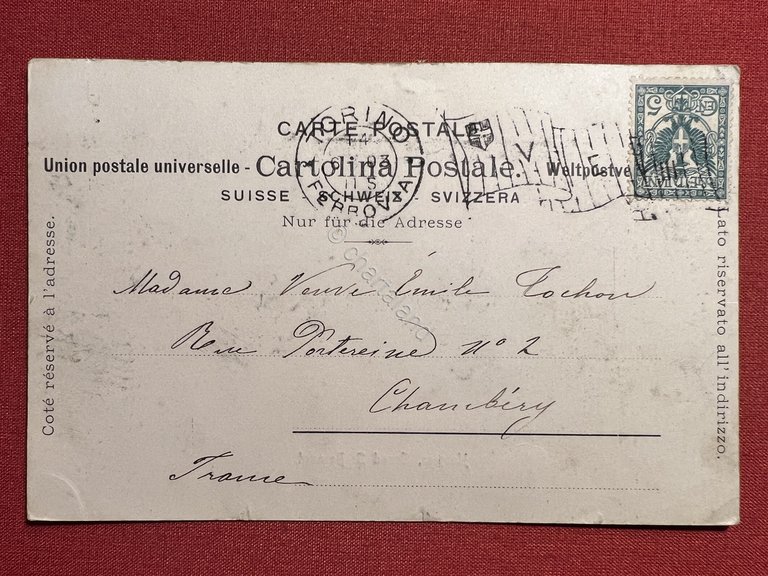 CARTE POSTALE
Union postale universelle - Cartolina Postale. - Weltpostve
SUISSE - SCHWEIZ - SVIZZERA
Nur für die Adresse
TORINO
03
FERROVIA
V E
5
Coté réservé à l'adresse.
Lato riservato all'indirizzo.
Madame Veuve Émile Cochon
Rue Portereine No 2
Chambéry
France
© chartaland